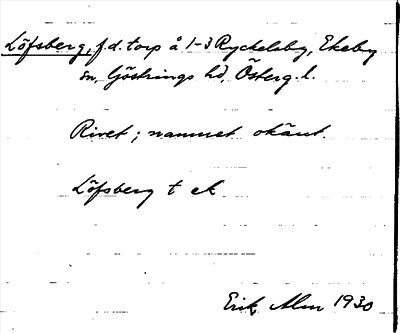 Löfsberg, f.d. torp å 1-3 Ryckelsby, Ekeby
sn, Göstrings hd, Österg. l.
Rivet; namnet okänt.
Löfsberg t ek.
Erik Alm 1930